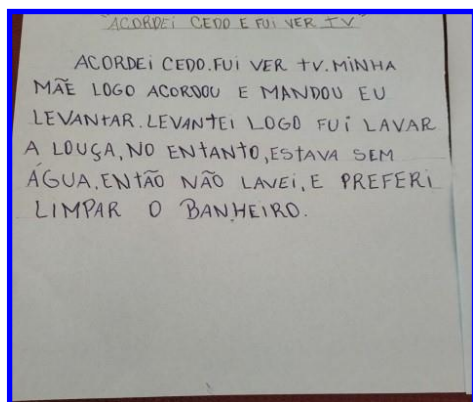 "ACORDEI CEDO E FUI VER TV"
ACORDEI CEDO.FUI VER TV.MINHA
MÃE LOGO ACORDOU E MANDOU EU
LEVANTAR.LEVANTEI LOGO FUI LAVAR
A LOUÇA,NO ENTANTO,ESTAVA SEM
ÁGUA.ENTÃO NÃO LAVEI,E PREFERI
LIMPAR O BANHEIRO.